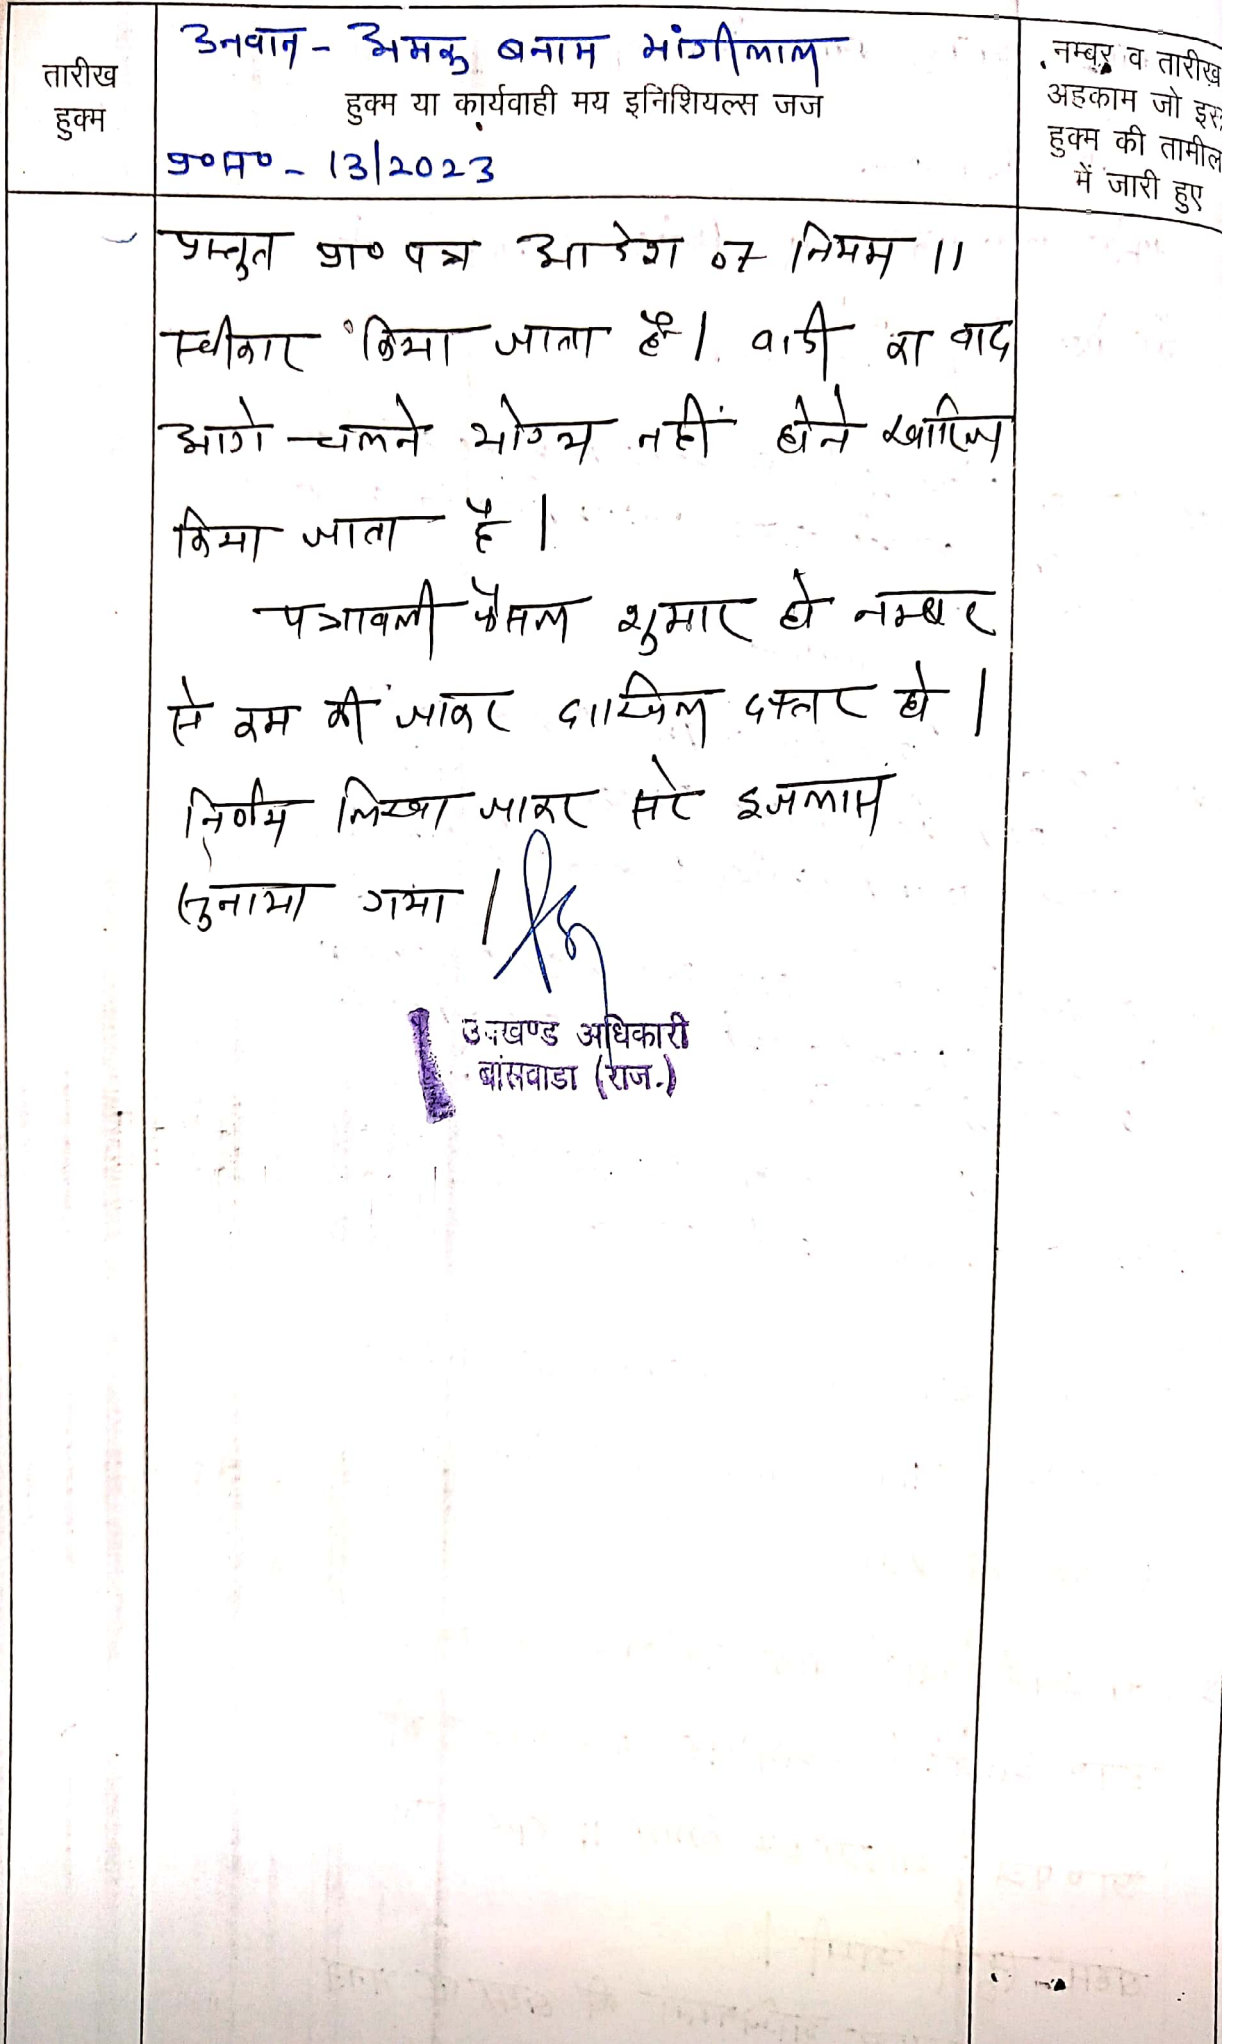 उनवान - अमकु बनाम मांगीलाल
तारीख
हुक्म
हुक्म या कार्यवाही मय इनिशियल्स जज
प्र०स० - 13/2023
नम्बर व तारीख
अहकाम जो इस
हुक्म की तामील
में जारी हुए
प्रस्तुत प्रा० पत्र आदेश 07 नियम 11
स्वीकार किया जाता है। वादी का वाद
आगे चलने योग्य नहीं होने खारिज
किया जाता है।
पत्रावली फैसल शुमार हो नम्बर
से कम की जाकर दाखिल दफ्तर हो।
निर्णय लिखा जाकर सरे इजलास
सुनाया गया।
उपखण्ड अधिकारी
बांसवाडा (राज.)